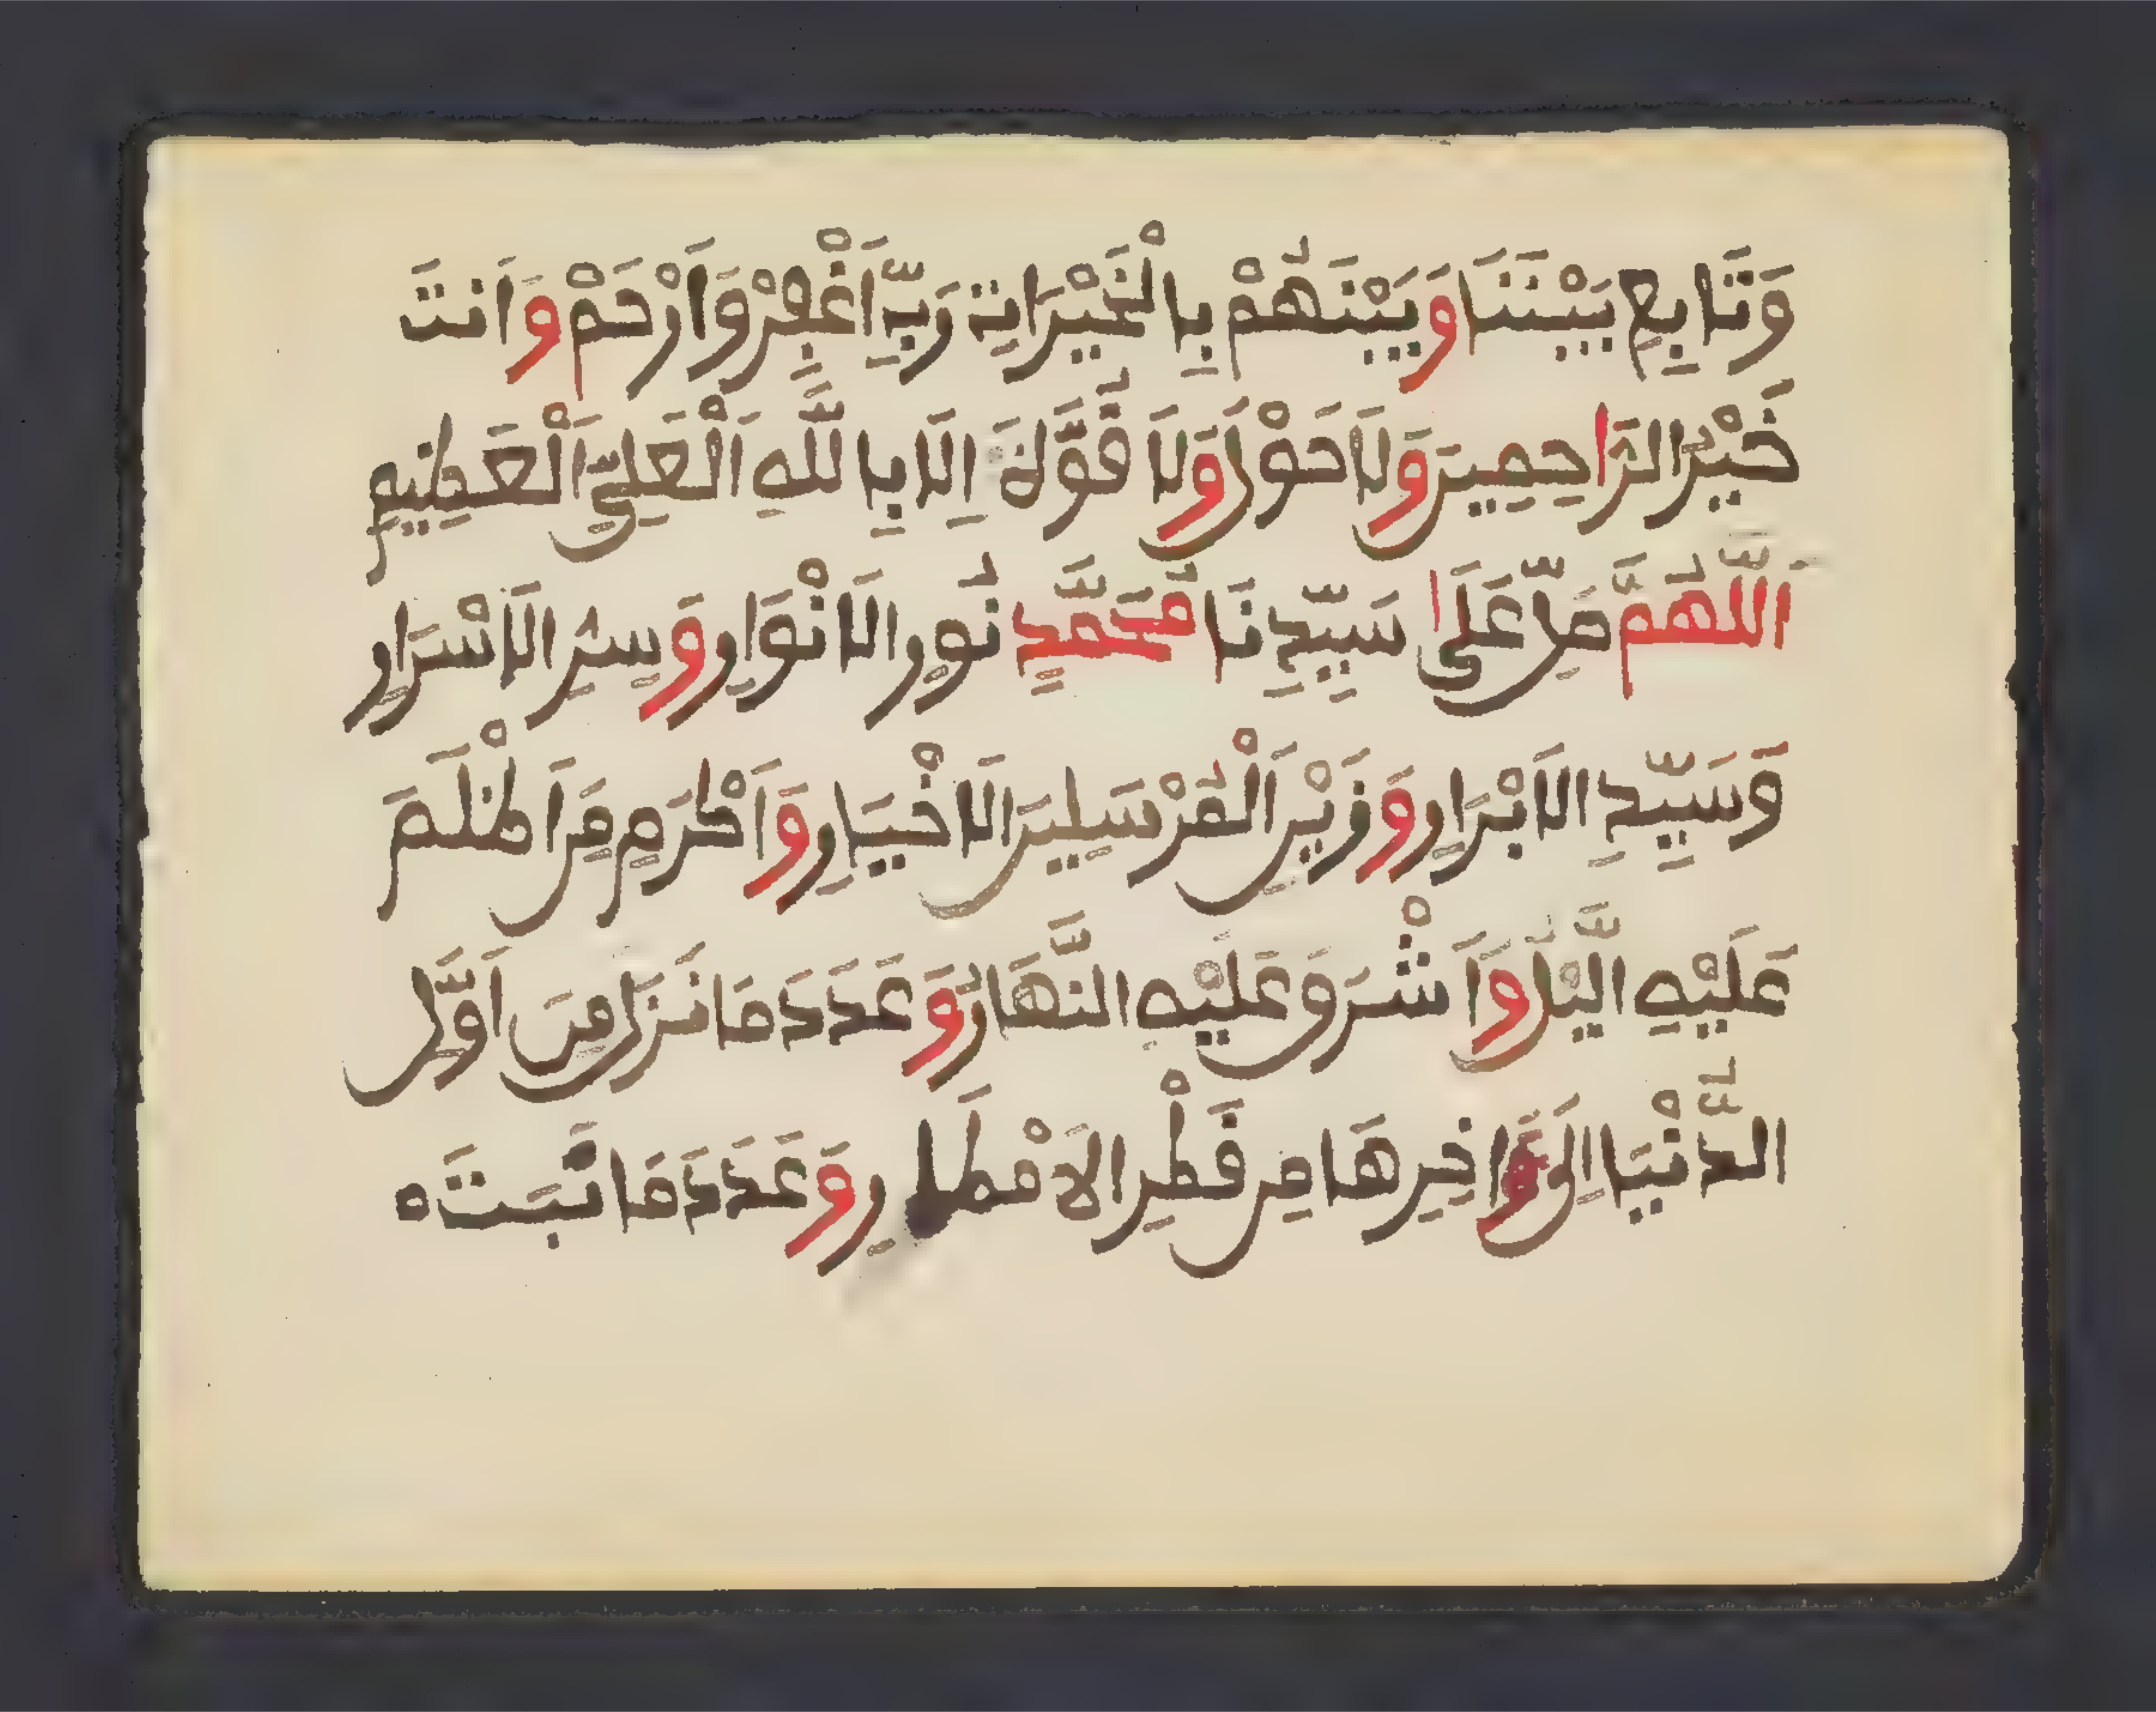 وَتَابِعْ بَيْنَنَا وَبَيْنَهُمْ بِالْخَيْرَاتِ رَبِّ اَغْفِرْ وَارْحَمْ وَاَنتَ
خَيْرُ الرَّاحِمِينَ وَلَا حَوْلَ وَلَا قُوَّةَ اِلَّا بِاللَّهِ اَلْعَلِيِّ اَلْعَظِيمِ
اَللَّهُمَّ صَلِّ عَلَى سَيِّدِنَا مُحَمَّدٍ نُورِ الَانْوَارِ وَسِرِّ الَاسْرَارِ
وَسَيِّدِ الَابْرَارِ وَزَيْنِ اَلْمُرْسَلِينَ الَاخْيَارِ وَاَكْرَمِ مَنَ اَظْلَمَ
عَلَيْهِ الَّيْلُ وَاَشْرَقَ عَلَيْهِ النَّهَارُ وَعَدَدَ مَا نَزَلَ مِنَ اَوَّلِ
الدُّنْيَا اِلَى ءَاخِرِهَا مِن قَطْرِ الَامْطَارِ وَعَدَدَ مَا نَبَتَ ه